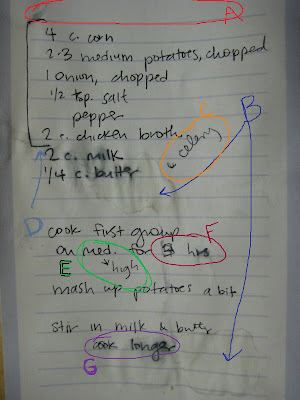 A
4 c. corn
2-3 medium potatoes, chopped
1 onion, chopped
1/2 tsp. salt
pepper
2 c. chicken broth
C
& celery
B
2 c. milk
1/4 c. butter
D
cook first group
on med. for hrs
F
E
*high
mash up potatoes a bit
stir in milk & butter
cook longer
G